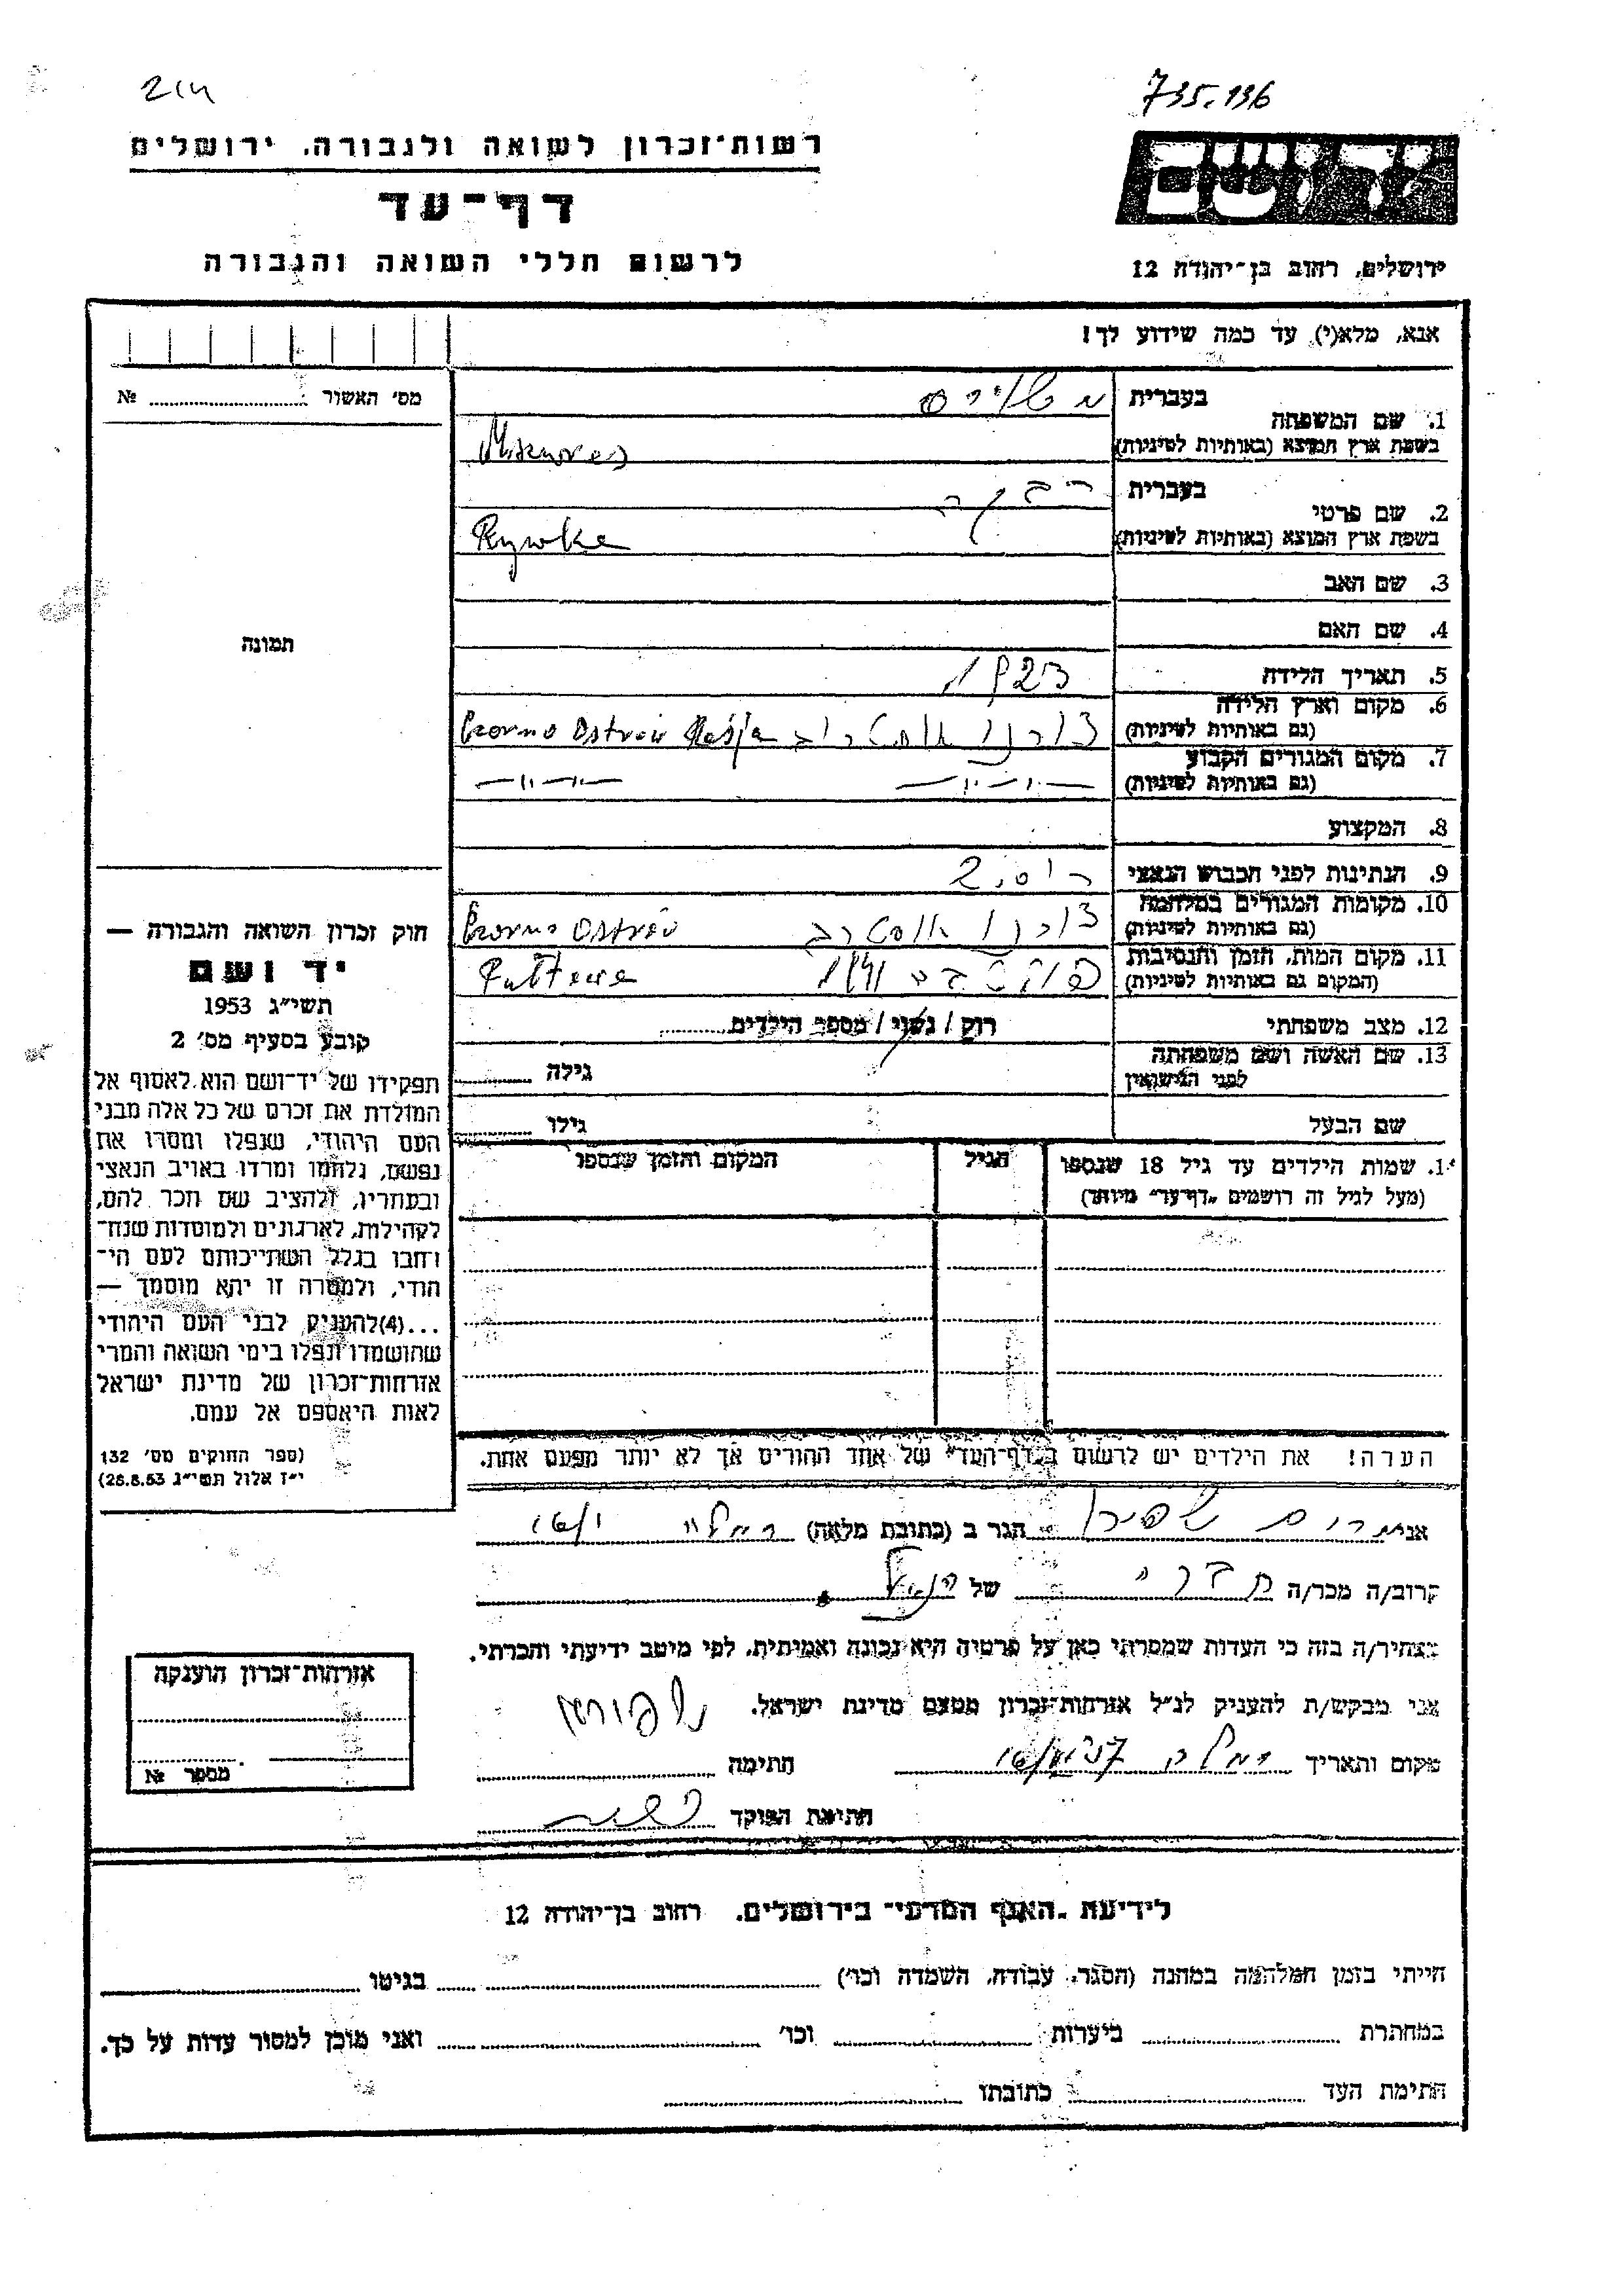 735.136
רשות־זכרון לשואה ולגבורה, ירושלים
דף־עד
לרשום חללי השואה והגבורה
ירושלים, רחוב בן־יהודה 12
אנא, מלא(י) עד כמה שידוע לך!
מס׳ האשור № 
1. שם המשפחה
בעברית
בשפת ארץ המוצא (באותיות לטיניות)
2. שם פרטי
בעברית רבקה
בשפת ארץ המוצא (באותיות לטיניות) Rywka
3. שם האב
4. שם האם
תמונה
5. תאריך הלידה 1923
6. מקום וארץ הלידה
(גם באותיות לטיניות)
7. מקום המגורים הקבוע
(גם באותיות לטיניות) —"—"— —"—"—
8. המקצוע
9. הנתינות לפני הכבוש הנאצי
10. מקומות המגורים במלחמה
(גם באותיות לטיניות) Ostrów
11. מקום המות, הזמן והנסיבות
(המקום גם באותיות לטיניות) 1941
12. מצב משפחתי רוק / נשוי / מספר הילדים
13. שם האשה ושם משפחתה
לפני הנישואין גילה
שם הבעל גילו
חוק זכרון השואה והגבורה —
יד ושם
תשי״ג 1953
קובע בסעיף מס׳ 2
תפקידו של יד־ושם הוא לאסוף אל
המולדת את זכרם של כל אלה מבני
העם היהודי, שנפלו ומסרו את
נפשם, נלחמו ומרדו באויב הנאצי
ובעוזריו, ולהציב שם וזכר להם,
לקהילות, לארגונים ולמוסדות שנח־
רחבו בגלל השתייכותם לעם הי־
הודי, ולמטרה זו יהא מוסמך —
...(4)להעניק לבני העם היהודי
שהושמדו ונפלו בימי השואה והמרי
אזרחות־זכרון של מדינת ישראל
לאות היאספם אל עמם.
(ספר החוקים מס׳ 132
י״ז אלול תשי״ג 28.8.53)
1. שמות הילדים עד גיל 18 שנספו
(מעל לגיל זה רושמים „דף־עד״ מיוחד)
הגיל
המקום והזמן שנספו
הערה! את הילדים יש לרשום ב„דף־העד״ של אחד ההורים אך לא יותר מפעם אחת.
אני שפירו הגר ב (כתובת מלאה)
קרוב/ה מכר/ה של
מצהיר/ה בזה כי העדות שמסרתי כאן על פרטיה היא נכונה ואמיתית, לפי מיטב ידיעתי והכרתי.
אני מבקש/ת להעניק לנ״ל אזרחות־זכרון מטעם מדינת ישראל.
מקום ותאריך רמלה חתימה
חתימת הפוקד
אזרחות־זכרון הוענקה
מספר №
לידיעת „האגף המדעי״ בירושלים, רחוב בן־יהודה 12
הייתי בזמן המלחמה במחנה (הסגר, עבודה, השמדה וכו׳) בגיטו
במחתרת ביערות וכו׳ ואני מוכן למסור עדות על כך.
חתימת העד כתובתו